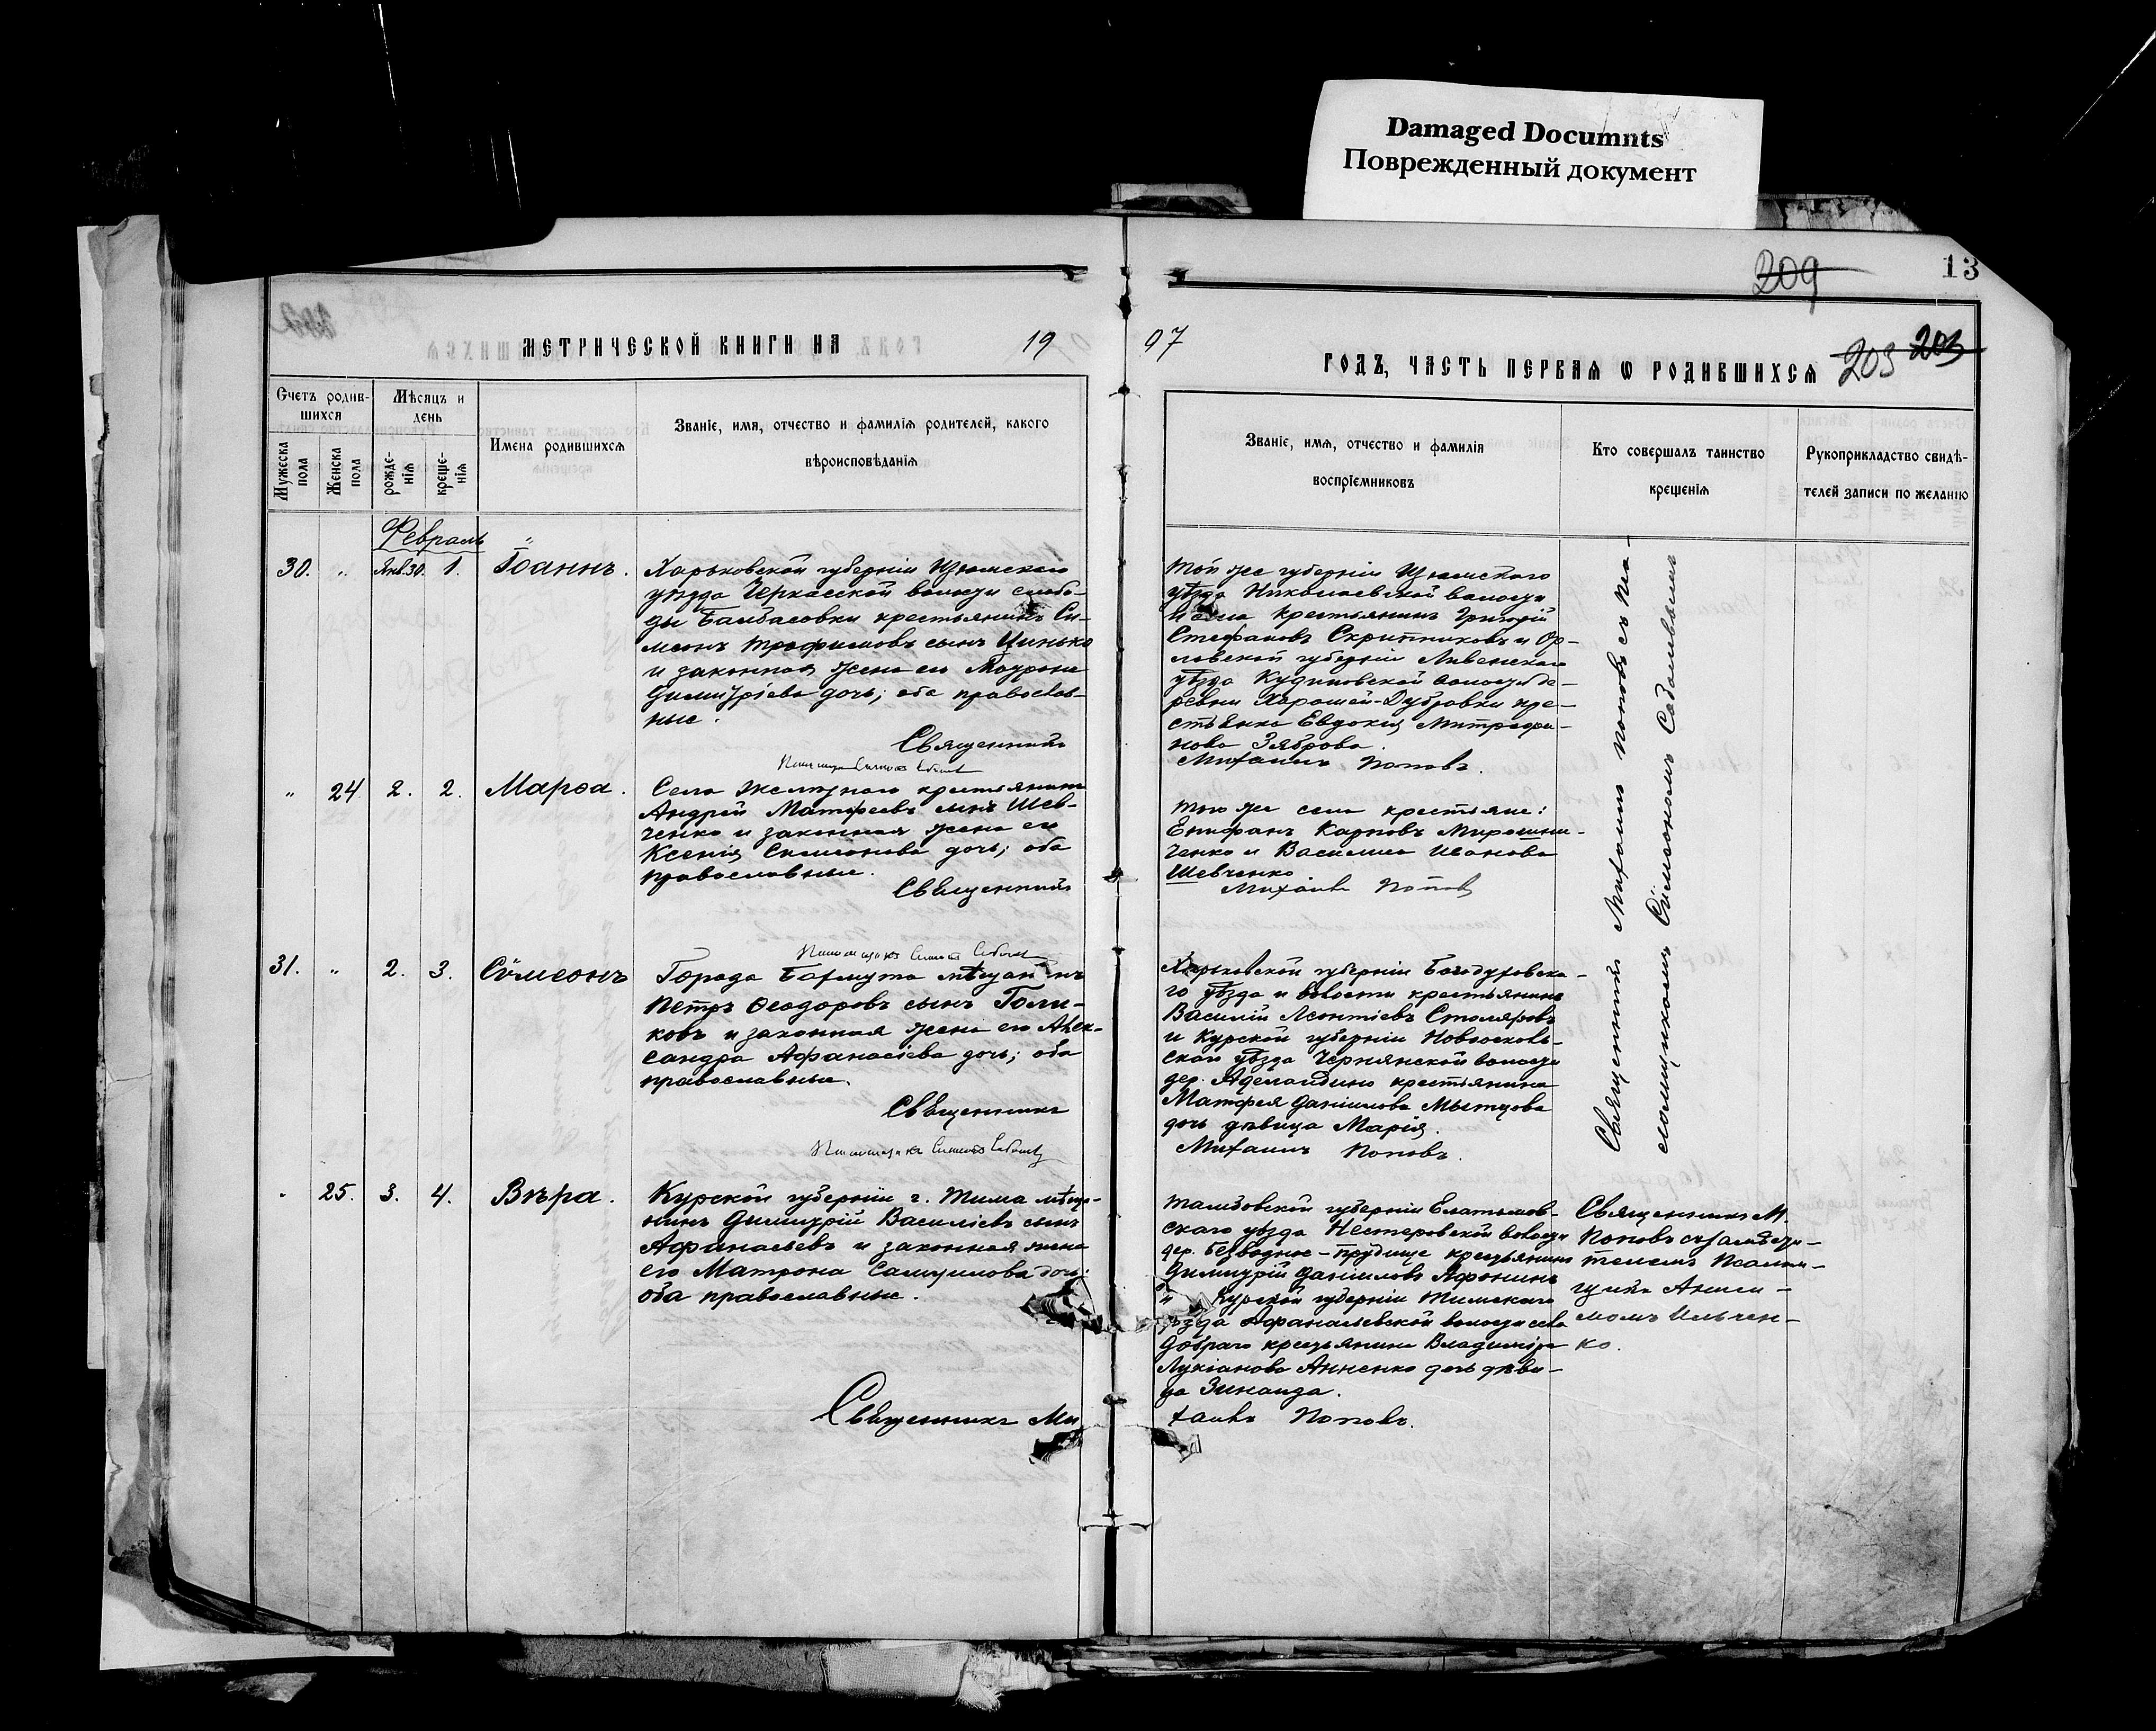 Damaged Documnts
Поврежденный документ
209
13
МЕТРИЧЕСКОЙ КНИГИ НА 19
07 ГОДЪ, ЧАСТЬ ПЕРВАЯ Ѡ РОДИВШИХСЯ 203 203
Счетъ родив-
шихся
Мужеска пола
Женска пола
Мѣсяцъ и
день
рожде-
нія
креще-
нія
Имена родившихся
Званіе, имя, отчество и фамилія родителей, какого
вѣроисповѣданія
Званіе, имя, отчество и фамилія
воспріемниковъ
Кто совершалъ таинство
крещенія
Рукоприкладство свидѣ-
телей записи по желанію
Февраль
30. „ Янв. 30. 1. Іоаннъ.
Харьковской губерніи Изюмскаго
уѣзда Черкасской волости слобо-
ды Банбасовки крестьянинъ Си-
меонъ Трофимовъ сынъ Цинько
и законная жена его
Димитріева дочь; оба православ-
ные.
Священникъ
Той же губерніи Изюмскаго
уѣзда Николаевской волости
и села крестьянинъ Григорій
Стефановъ Скрипниковъ и Ор-
ловской губерніи Ливенскаго
уѣзда Кудиновской волости де-
ревни Хорошей-Дубровки кре-
стьянка Евдокія Митрофа-
нова Зяброва.
Михаилъ Поповъ.
„ 24 2. 2. Марѳа.
Села крестьянинъ
Андрей Матфеевъ сынъ Шев-
ченко и законная жена его
Ксенія Симеонова дочь; оба
православные.
Священникъ
Того же села крестьяне:
Епифанъ Карповъ Мирошни-
ченко и Василиса Иванова
Шевченко
Михаилъ Поповъ
31. „ 2. 3. Сѵмеонъ
Города Бахмута мѣщанинъ
Петръ Ѳеодоровъ сынъ Голи-
ковъ и законная жена его Алек-
сандра Афанасіева дочь; оба
православные.
Священникъ
Харьковской губерніи Богодуховска-
го уѣзда и волости крестьянинъ
Василій Леонтіевъ Столяровъ
и Курской губерніи Новооскольс-
скаго уѣзда Чернянской волости
дер. крестьянина
Матфея Даніилова Мытцова
дочь дѣвица Марія.
Михаилъ Поповъ.
Священникъ Михаилъ Поповъ съ пса-
ломщикомъ Сѵмеономъ
„ 25. 3. 4. Вѣра.
Курской губерніи г. Тима мѣща-
нинъ Димитрій Василіевъ сынъ
Афанасьевъ и законная жена
его Матрона Самуилова дочь;
оба православные.
Священникъ Ми
Тамбовской губерніи Елатьмов-
скаго уѣзда Нестеровской волости
дер. Безводное-Прудище крестьянинъ
Димитрій Даніиловъ Афонинъ
и Курской губерніи Тимскаго
уѣзда Афанасьевской волости села
Добраго крестьянина Владиміра
Лукіанова Анненко дочь дѣви-
ца Зинаида.
хаилъ Поповъ.
Священникъ М.
Поповъ съ
псалом-
щика Аниси-
момъ Ильчен-
ко.